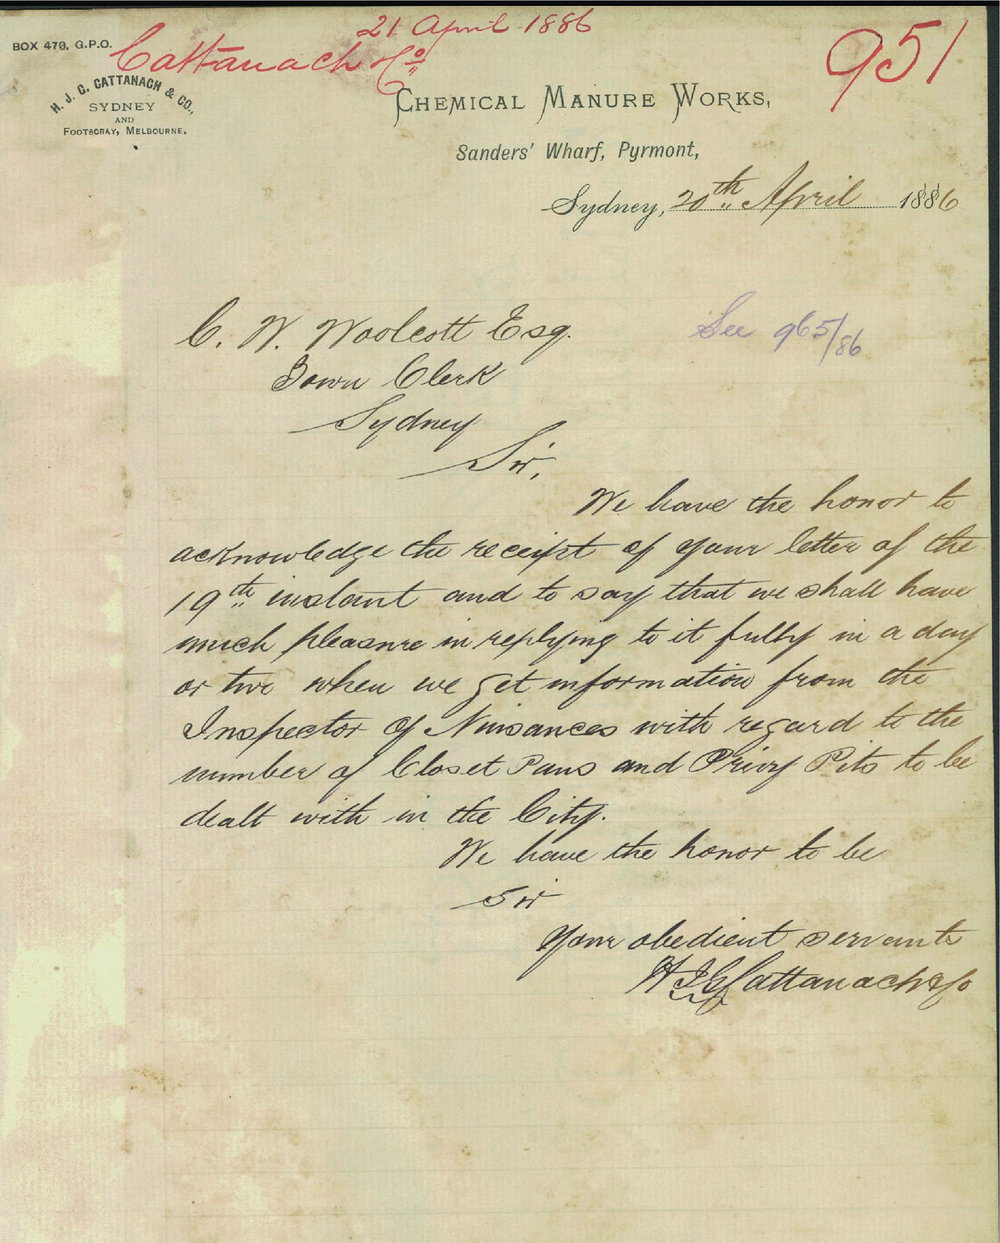 21 April 1886
BOX 470, G.P.O.
Cattanach & Co
951
H. J. G. CATTANACH & CO.,
SYDNEY
AND
FOOTSCRAY, MELBOURNE.
CHEMICAL MANURE WORKS,
Sanders' Wharf, Pyrmont,
Sydney, 20th April 1886
C. W. Woolcott Esq.
See 965/86
Town Clerk
Sydney
Sir,
We have the honor to
acknowledge the receipt of your letter of the
19th instant and to say that we shall have
much pleasure in replying to it fully in a day
or two when we get information from the
Inspector of Nuisances with regard to the
number of Closet Pans and Privy Pits to be
dealt with in the City.
We have the honor to be
Sir
Your obedient servants
H J G Cattanach & Co